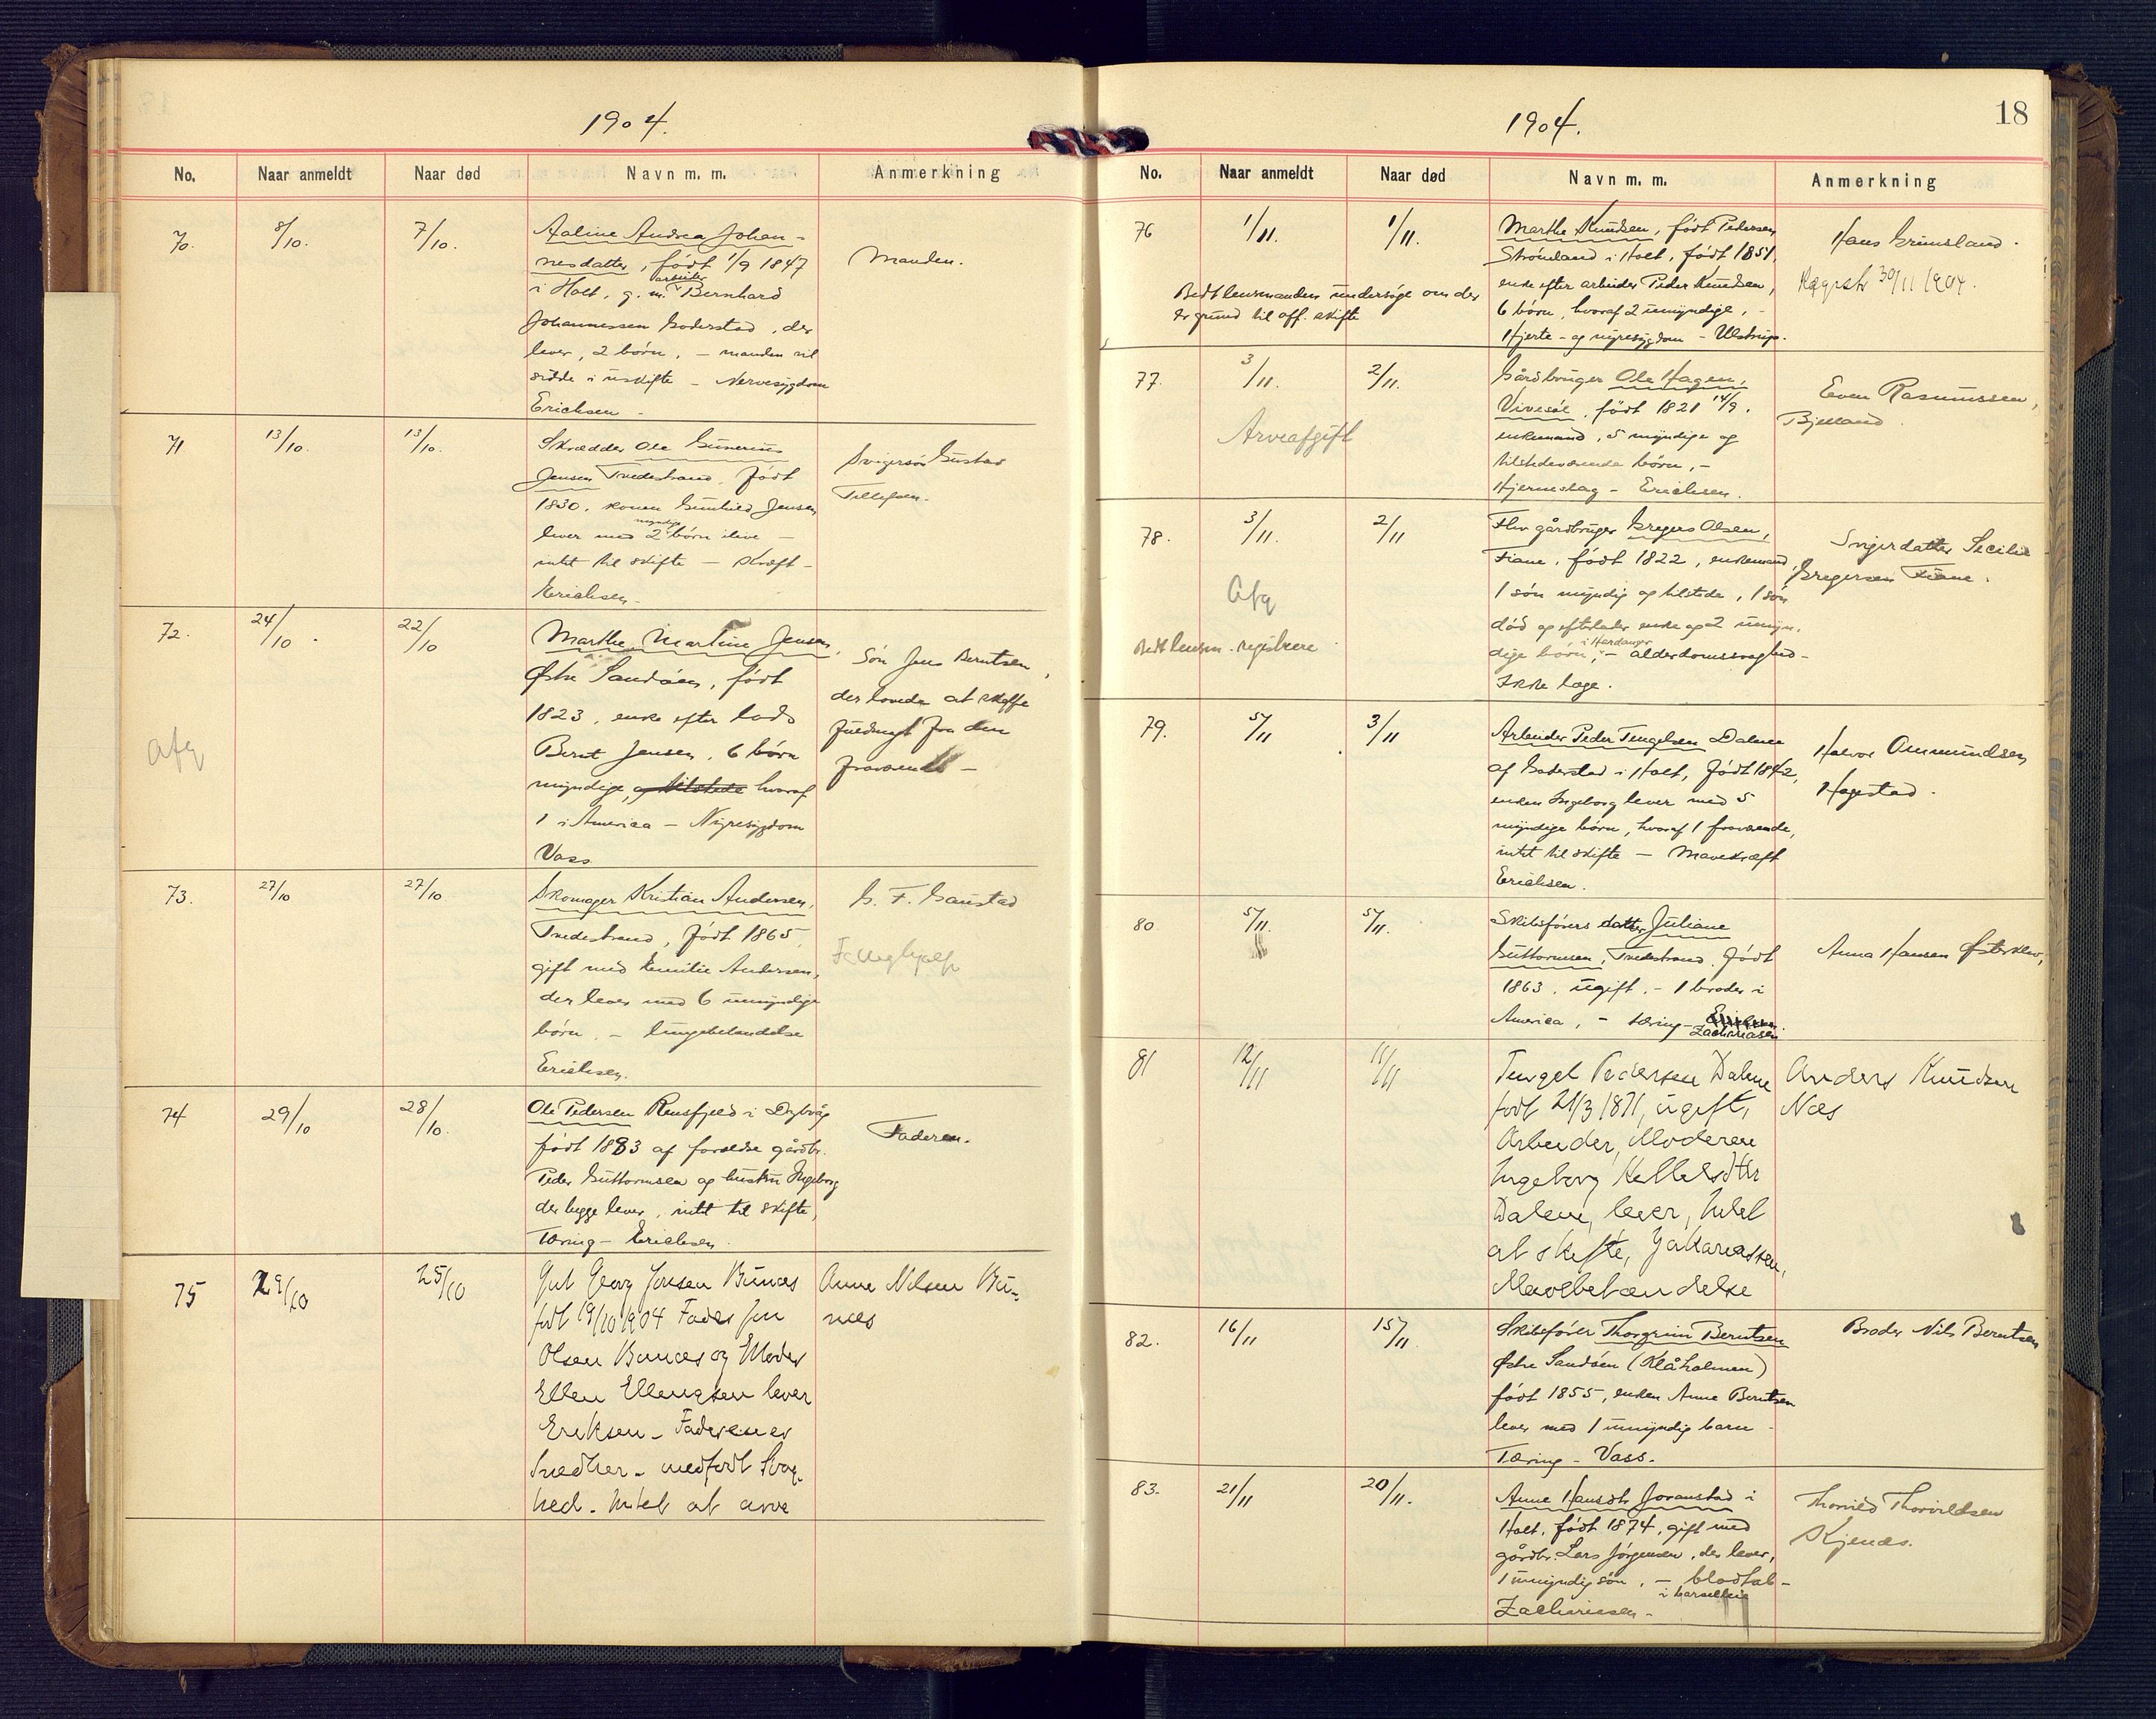 1904.
No. Naar anmeldt Naar død Navn m. m. Anmerkning
70. 8/10. 7/10. Aaline Andrea Johan-
nesdatter, født 1/9 1847
i Holt, g. m. arbeider Bernhard
Johannessen Goderstad, der
lever, 2 børn, – manden vil
sidde i uskifte – Nervesygdom
Erichsen –
Manden.
71 13/10. 13/10. Skrædder Ole Gunerius
Jensen Tvedestrand, født
1830, konen Gunhild Jensen
lever med 2 myndige børn ilive –
intet til skifte – Kræft –
Erichsen –
Svigersøn Gustav
Tellefsen.
72. 24/10. 22/10 Marthe Martine Jensen,
Østre Sandøen, født
1823, enke efter lods
Bernt Jensen, 6 børn
myndige, og tilstede hvoraf
1 i America – Nyresygdom
Vass
Søn Jens Berntsen,
der lovede at skaffe
fuldmagt fra den
fraværende –
Afg
73. 27/10 27/10 Skomager Kristian Andersen,
Tvedestrand, født 1865,
gift med Emilie Andersen,
der lever med 6 umyndige
børn. – lungebetændelse
Erichsen.
G. F. Gaustad
74 29/10 28/10. Ole Pedersen Rensfjeld i Dybvåg
født 1883 af forældre gårdbr.
Peder Guttormsen og hustru Ingeborg
der begge lever, intet til skifte,
Tæring – Erichsen.
Faderen.
75 29/10 25/10 Gut Georg Jonsen Bunæs
født 19/10 1904 Fader Jon
Olsen Bunæs og Moder
Ellen Ellengsen lever
Eriksen – Faderen er
Snedker – medfødt Svag-
hed. Intet at arve
Anne Nilsen Bu-
næs
1904.
18
No. Naar anmeldt Naar død Navn m. m. Anmerkning
76 1/11. 1/11. Marthe Knudsen, født Pedersen
Strømland i Holt, født 1851,
enke efter arbeider Peder Knudsen,
6 børn, hvoraf 2 umyndige, –
Hjerte- og nyresygdom – Ulstrup.
Hans Grimsland.
Regist 30/11 1904.
Bedt lensmanden undersøge om der
er grund til off. skifte
77. 3/11. 2/11. Gårdbruger Ole Hagen,
Vivesøl, født 1821 14/9.
enkemand, 5 myndige og
tilstedeværende børn, –
Hjerneslag – Erichsen.
Even Rasmussen,
Bjelland.
Arveafgift
78. 3/11. 2/11 Fhv gårdbruger Gregers Olsen,
Fiane, født 1822, enkemand,
1 søn myndig og tilstede, 1 søn
død og efterlader enke og 2 umyn-
dige børn, i Hardanger – alderdomssvaghed –
Ikke læge.
Svigerdatter Secilie
Gregersen Fiane.
Afg
Bedt lensm. registrere
79. 5/11 3/11 Arbeider Peder Tengelsen Dalene
af Goderstad i Holt, født 1842,
enken Ingeborg lever med 5
myndige børn, hvoraf 1 fraværende,
intet til skifte – Mavekræft
Erichsen.
Halvor Ommundsen
Hagestad.
80 5/11. 5/11. Skibsførers datter Juliane
Guttormsen, Tvedestrand, født
1863, ugift. – 1 broder i
America, – tæring – Zachariasen
Anna Hansen Østerklev,
81 12/11 11/11 Tengel Pedersen Dalene
født 21/3 1871, ugift,
Arbeider, Moderen
Ingeborg Kettelsdtr
Dalene, lever, Intet
at skifte, Zakariassen,
Mavebetændelse
Anders Knudsen
Næs
82. 16/11 15/11 Skibsfører Thorgrim Berntsen
Østre Sandøen (Klåholmen)
født 1855, enken Anne Berntsen
lever med 1 umyndig barn –
Tæring – Vass.
Broder Nils Berntsen
83. 21/11 20/11. Anne Hansdtr Joranstad i
Holt, født 1874, gift med
gårdbr. Lars Jørgensen, der lever,
1 umyndig søn, – blodtab –
i barselseng
Zachariasen –
Thorvild Thorvildsen
Skjenæs.